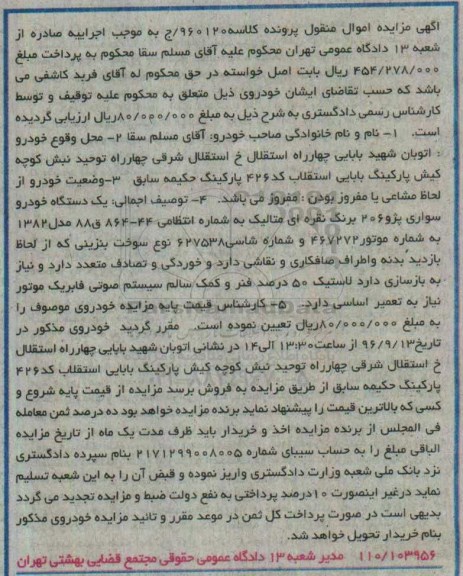 آگهی مزایده اموال منقول پرونده کلاسه۹۶۰۱۲۰/ج به موجب اجراییه صادره از
شعبه ۱۳ دادگاه عمومی تهران محکوم علیه آقای مسلم سقا محکوم به پرداخت مبلغ
۴۵۴/۲۷۸/۰۰۰ ریال بابت اصل خواسته در حق محکوم له آقای فرید کاشفی می
باشد که حسب تقاضای ایشان خودروی ذیل متعلق به محکوم علیه توقیف و توسط
کارشناس رسمی دادگستری به شرح ذیل به مبلغ ۸۰/۰۰۰/۰۰۰ریال ارزیابی گردیده
است. ۱- نام و نام خانوادگی صاحب خودرو: آقای مسلم سقا ۲- محل وقوع خودرو
: اتوبان شهید بابایی چهارراه استقلال خ استقلال شرقی چهارراه توحید نبش کوچه
کیش پارکینگ بابایی استقلاب کد۴۲۶ پارکینگ حکیمه سابق ۳-وضعیت خودرو از
لحاظ مشاعی یا مفروز بودن : مفروز می باشد. ۴- توصیف اجمالی: یک دستگاه خودرو
سواری پژو۲۰۶ برنگ نقره ای متالیک به شماره انتظامی ۴۴-۸۶۴ ق۸۸ مدل۱۳۸۲
به شماره موتور۴۶۷۲۷۲ و شماره شاسی۶۲۷۵۳۸ نوع سوخت بنزینی که از لحاظ
بازدید بدنه واطراف صافکاری و نقاشی دارد و خوردگی و تصادف متعدد دارد و نیاز
به بازسازی دارد لاستیک ۵۰ درصد فنر و کمک سالم سیستم صوتی فابریک موتور
نیاز به تعمیر اساسی دارد. ۵- کارشناس قیمت پایه مزایده خودروی موصوف را
به مبلغ ۸۰/۰۰۰/۰۰۰ریال تعیین نموده است. مقرر گردید خودروی مذکور در
تاریخ۹۶/۹/۱۳ از ساعت۱۳:۳۰ الی۱۴ در نشانی اتوبان شهید بابایی چهارراه استقلال
خ استقلال شرقی چهارراه توحید نبش کوچه کیش پارکینگ بابایی استقلاب کد۴۲۶
پارکینگ حکیمه سابق از طریق مزایده به فروش برسد مزایده از قیمت پایه شروع و
کسی که بالاترین قیمت را پیشنهاد نماید برنده مزایده خواهد بود ده درصد ثمن معامله
فی المجلس از برنده مزایده اخذ و خریدار باید ظرف مدت یک ماه از تاریخ مزایده
الباقی مبلغ را به حساب سیبای شماره ۲۱۷۱۲۹۹۰۰۸۰۰۵ بنام سپرده دادگستری
نزد بانک ملی شعبه وزارت دادگستری واریز نموده و قبض آن را به این شعبه تسلیم
نماید درغیر اینصورت ۱۰درصد پرداختی به نفع دولت ضبط و مزایده تجدید می گردد
بدیهی است در صورت پرداخت کل ثمن در موعد مقرر و تائید مزایده خودروی مذکور
بنام خریدار تحویل خواهد شد.
۱۱۰/۱۰۳۹۵۶ مدیر شعبه ۱۳ دادگاه عمومی حقوقی مجتمع قضایی بهشتی تهران